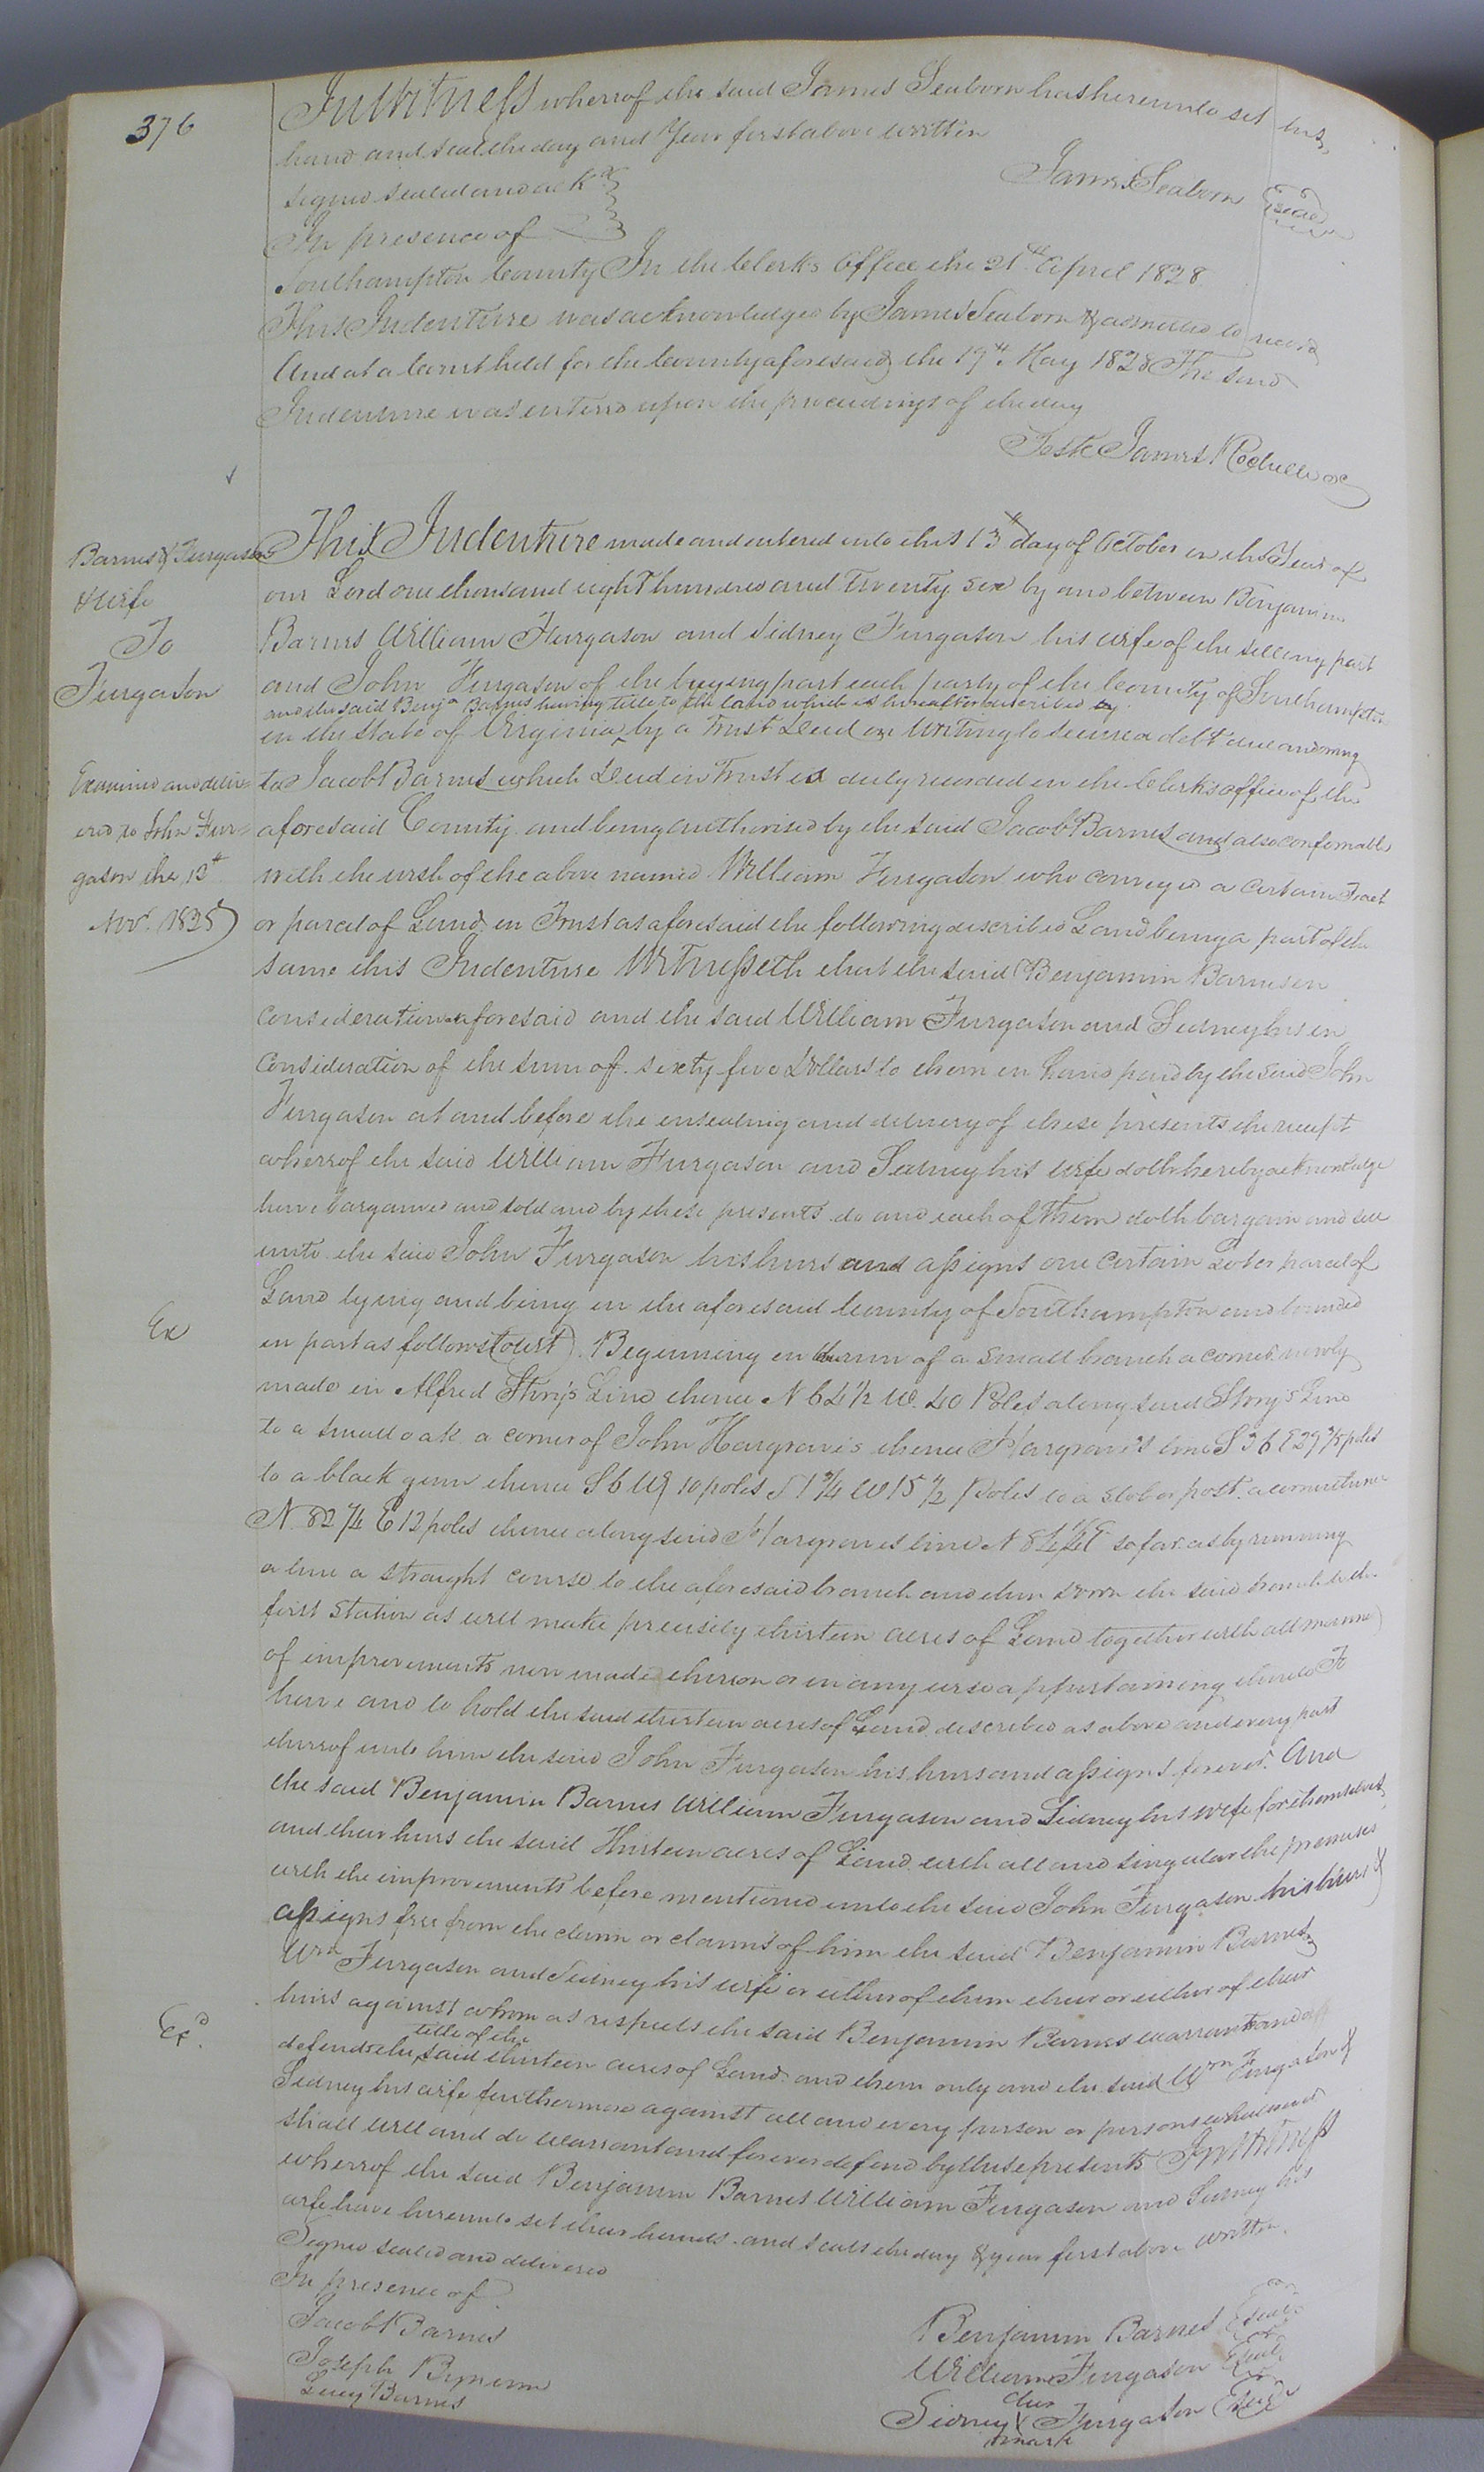 376
In Witness whereof the said James Seaborn has hereunto set his
hand and seal the day and Year first above written
Signed sealed and ackd
In presence of
James Seaborn Seal
Southampton County In the Clerks Office the 21st April 1828
This Indenture was acknowledged by James Seaborn & admitted to record
And at a Court held for the County aforesaid the 19th May 1828 The said
Indenture was entered upon the proceedings of the day
Teste James Rochelle CC
Barnes & Furgason
& wife
To
Furgason
This Indenture made and entered into this 13th day of October in the Year of
our Lord one thousand eight hundred and Twenty six by and between Benjamin
Barnes William Furgason and Sidney Furgason his wife of the selling part
and John Furgason of the buying part each party of the County of Southampton
and the said Benja Barnes having title to the land which is hereafter described by
in the State of Virginia by a Trust Deed or Writing to secure a debt due and owing
Examined and deliv=
ered to John Fur=
gason the 13th
Novr. 1835
to Jacob Barnes which Deed in Trust is duly recorded in the Clerks office of the
aforesaid County and being authorised by the said Jacob Barnes and also conformable
with the wish of the above named William Furgason who conveyed a certain Tract
or parcel of Land in Trust as aforesaid the following described Land being a part of the
same this Indenture Witnesseth that the said Benjamin Barnes in
Consideration aforesaid and the said William Furgason and Sidney his in
Consideration of the sum of sixty five Dollars to them in hand paid by the said John
Furgason at and before the ensealing and delivery of these presents the receipt
whereof the said William Furgason and Sidney his wife doth hereby acknowledge
have bargained and sold and by these presents do and each of Them doth bargain and sell
unto the said John Furgason his heirs and assigns one certain Lot or parcel of
Land lying and being in the aforesaid County of Southampton and bounded
Ex
in part as follows (to wit) Beginning in the run of a small branch a corner newly
made in Alfred Story's Line thence N 64 1/2 W. 40 Poles along said Story's Line
to a small oak a corner of John Hargrave's thence Hargrave's line S 36 E 29 3/5 poles
to a black gum thence S 6 W 10 poles S 1 3/4 W 15 1/2 Poles to a stob or post a corner thence
N 82 1/4 E 12 poles thence along said Hargraves line N E so far as by running
a line a straight course to the aforesaid branch and then down the said branch to the
first station as will make precisely thirteen acres of Land together with all manner
of improvements now made thereon or in any wise appertaining thereto To
have and to hold the said thirteen acres of Land described as above and every part
thereof unto him the said John Furgason his heirs and assigns forever. And
the said Benjamin Barnes William Furgason and Sidney his wife for themselves
and their heirs the said Thirteen acres of Land with all and singular the premises
with the improvements before mentioned unto the said John Furgason his heirs &
assigns free from the claim or claims of him the said Benjamin Barnes
Wm Furgason and Sidney his wife or either of them their or either of their
heirs against whom as respects the said Benjamin Barnes warrants and
Exd.
title of the
defends the said thirteen acres of Land and them only and the said Wm Furgason &
Sidney his wife furthermore against all and every person or persons whatsoever
shall will and do warrant and forever defend by these presents In Witness
whereof the said Benjamin Barnes William Furgason and Sidney his
wife have hereunto set their hands and seals the day & year first above written.
Signed sealed and delivered
In presence of
Jacob Barnes
Joseph Bynum
Lucy Barnes
Benjamin Barnes Seal
William Furgason Seal
her
Sidney X Furgason Seal
mark